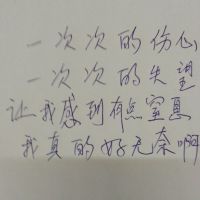 一次次的伤心
一次次的失望
让我感到有点窒息
我真的好无奈啊